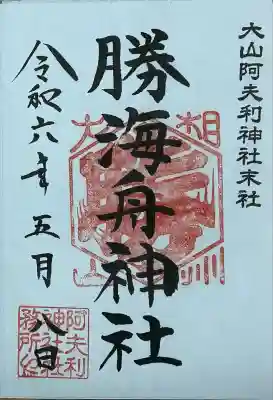 大山阿夫利神社末社
勝海舟神社
令和六年五月
八日
相
大
山
阿夫利
神社社
務所印